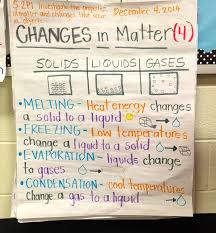 S2P1 Investigate the properties
of matter and changes that occur
in objects.
December 4, 2014
CHANGES in Matter (4)
SOLIDS LIQUIDS GASES
• MELTING - Heat energy changes
a solid to a liquid
• FREEZING - Low temperatures
change a liquid to a solid
• EVAPORATION - liquids change
to gases
• CONDENSATION - cool temperatures
Change a gas to a liquid